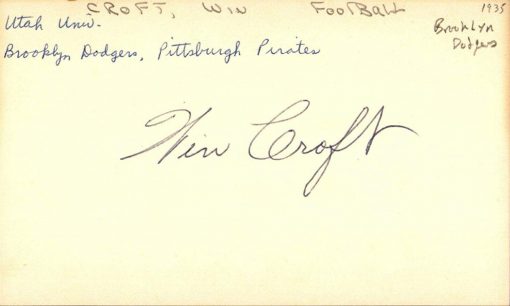 CROFT, WIN FOOTBALL 1935
Utah Univ.
Brooklyn Dodgers
Brooklyn Dodgers, Pittsburgh Pirates
Win Croft